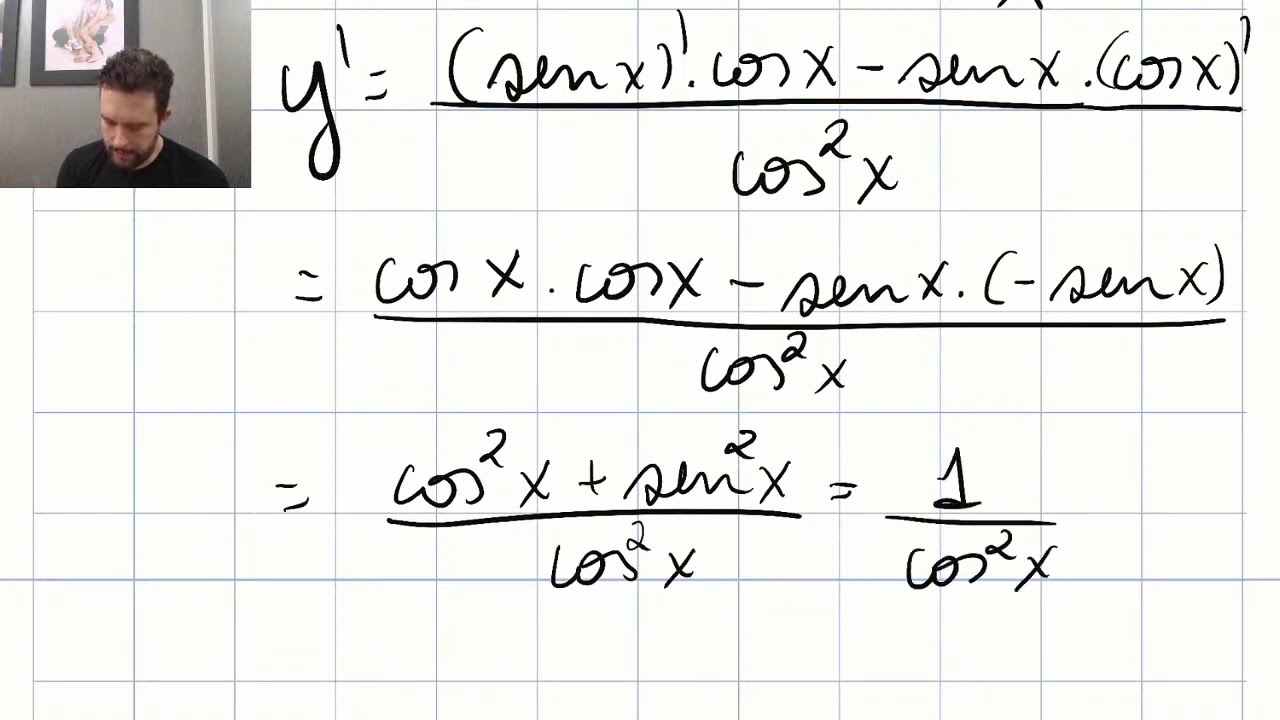 y' = (sen x)' . cos x - sen x . (cos x)' / cos² x
= cos x . cos x - sen x . (- sen x) / cos² x
= cos² x + sen² x / cos² x = 1 / cos² x